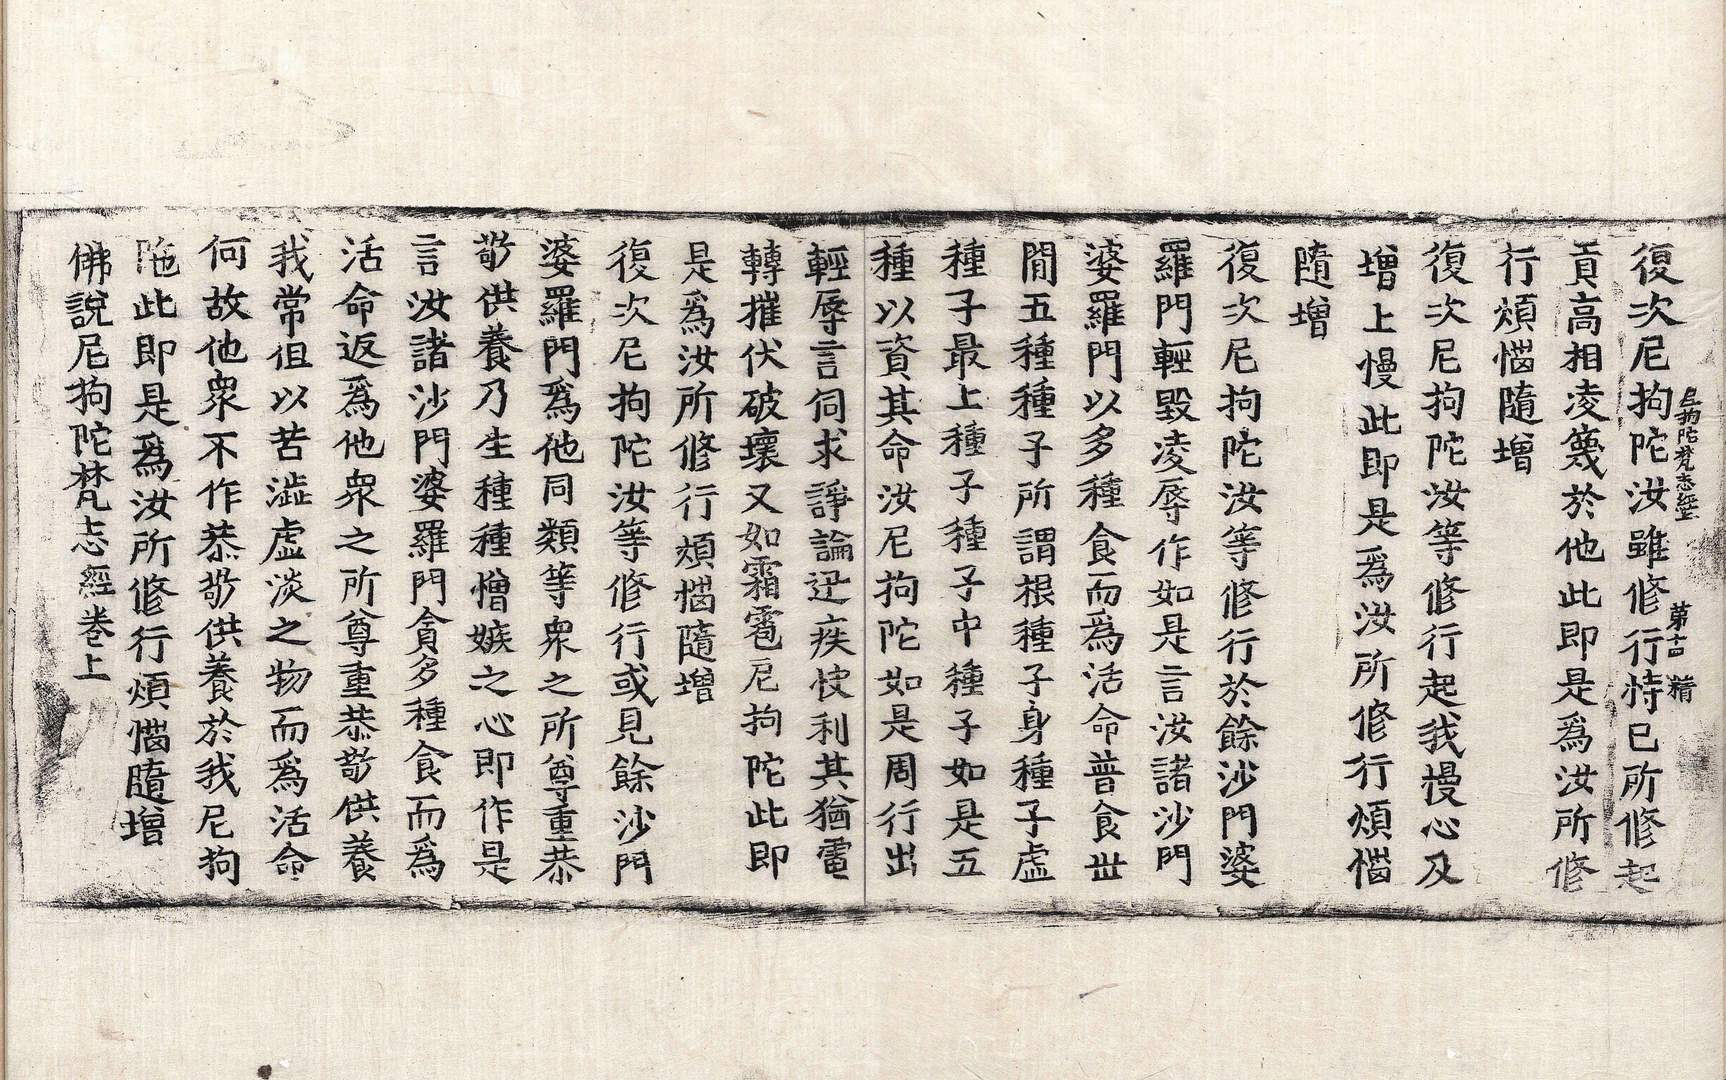 尼拘陀梵志經 第十四 精
復次尼拘陀汝雖修行恃已所修起
貢高相凌篾於他此即是爲汝所修
行煩惱隨增
復次尼拘陀汝等修行起我慢心及
增上慢此即是爲汝所修行煩惱
隨增
復次尼拘陀汝等修行於餘沙門婆
羅門輕毀凌辱作如是言汝諸沙門
婆羅門以多種食而爲活命普食世
閒五種種子所謂根種子身種子虛
種子最上種子種子中種子如是五
種以資其命汝尼拘陀如是周行出
輕辱言伺求諍論迅疾快利其猶電
轉摧伏破壞又如霜雹尼拘陀此即
是爲汝所修行煩惱隨增
復次尼拘陀汝等修行或見餘沙門
婆羅門爲他同類等衆之所尊重恭
敬供養乃生種種憎嫉之心即作是
言汝諸沙門婆羅門貪多種食而爲
活命返爲他衆之所尊重恭敬供養
我常但以苦澁虛淡之物而爲活命
何故他衆不作恭敬供養於我尼拘
陁此即是爲汝所修行煩惱隨增
佛說尼拘陀梵志經卷上